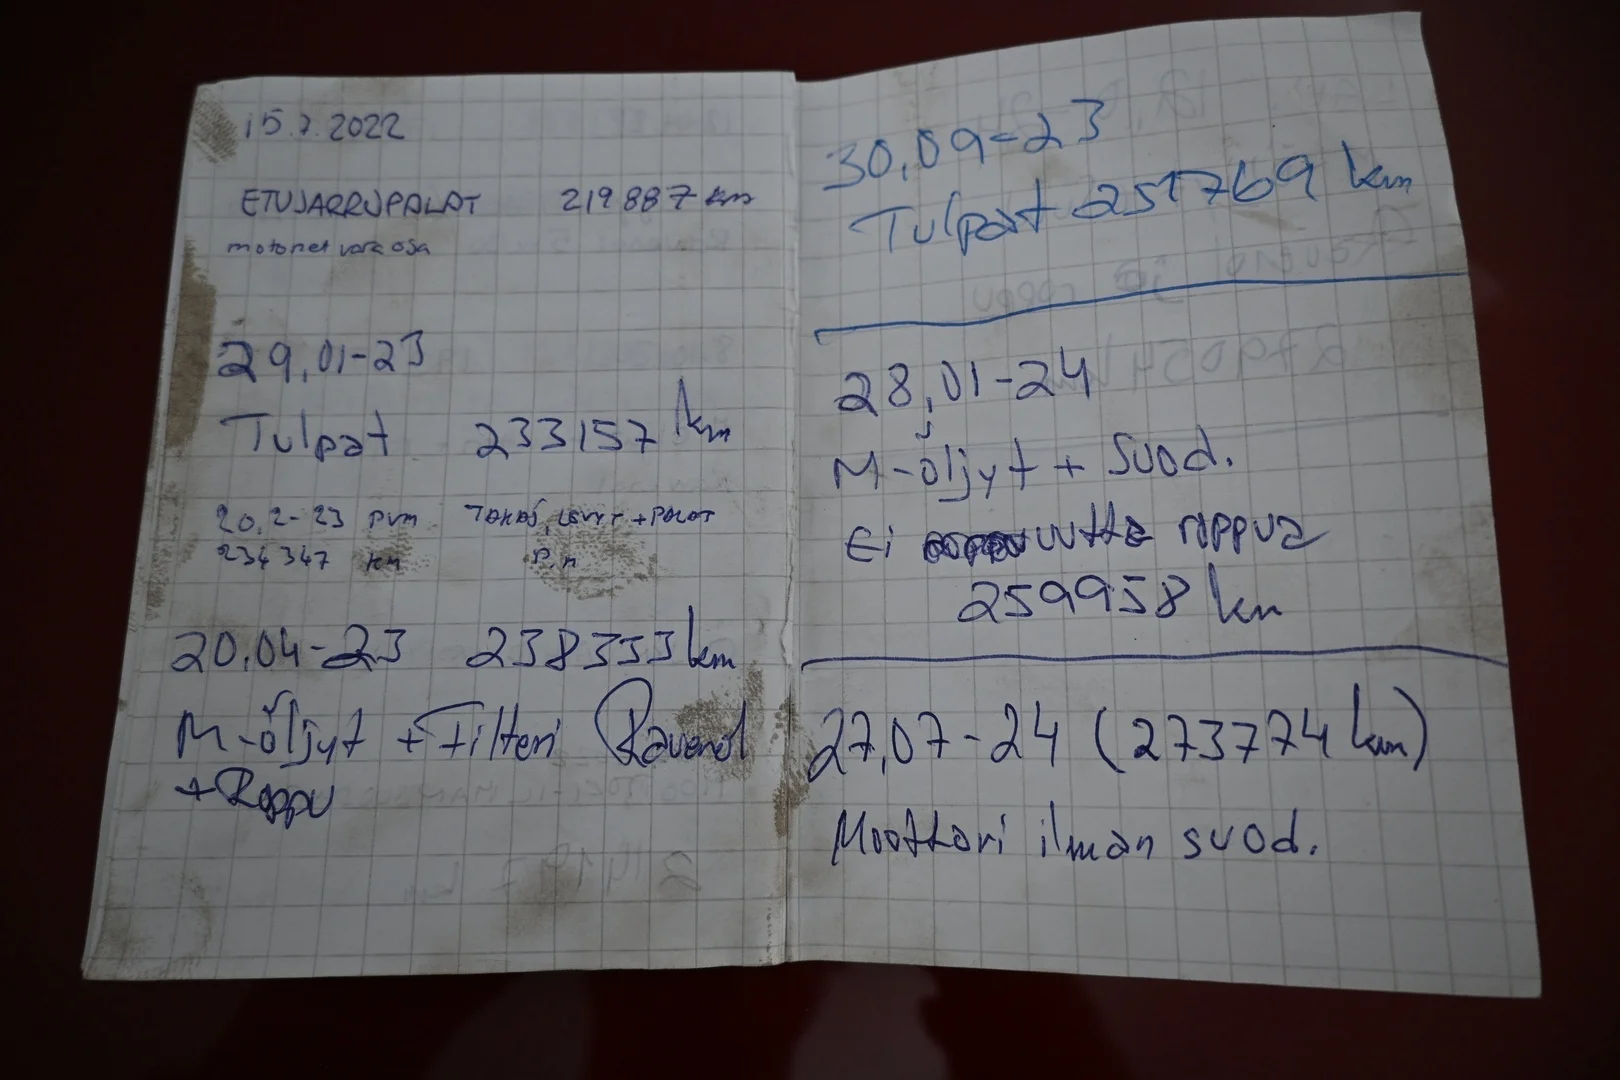 15.7.2022
ETUJARRUPALAT 219887 km
motonet vara osa
29,01-23
Tulpat 233157 km
20,2-23 pvm TAKAJ, LEVYT + PALAT
234347 km P.n
20,04-23 238333 km
M-öljyt + Filtteri Ravenol
+ Roppu
30,09-23
Tulpat 251769 km
28,01-24
M-öljyt + Suod.
Ei uutta roppua
259958 km
27,07-24 (273774 km)
Moottori ilman suod.